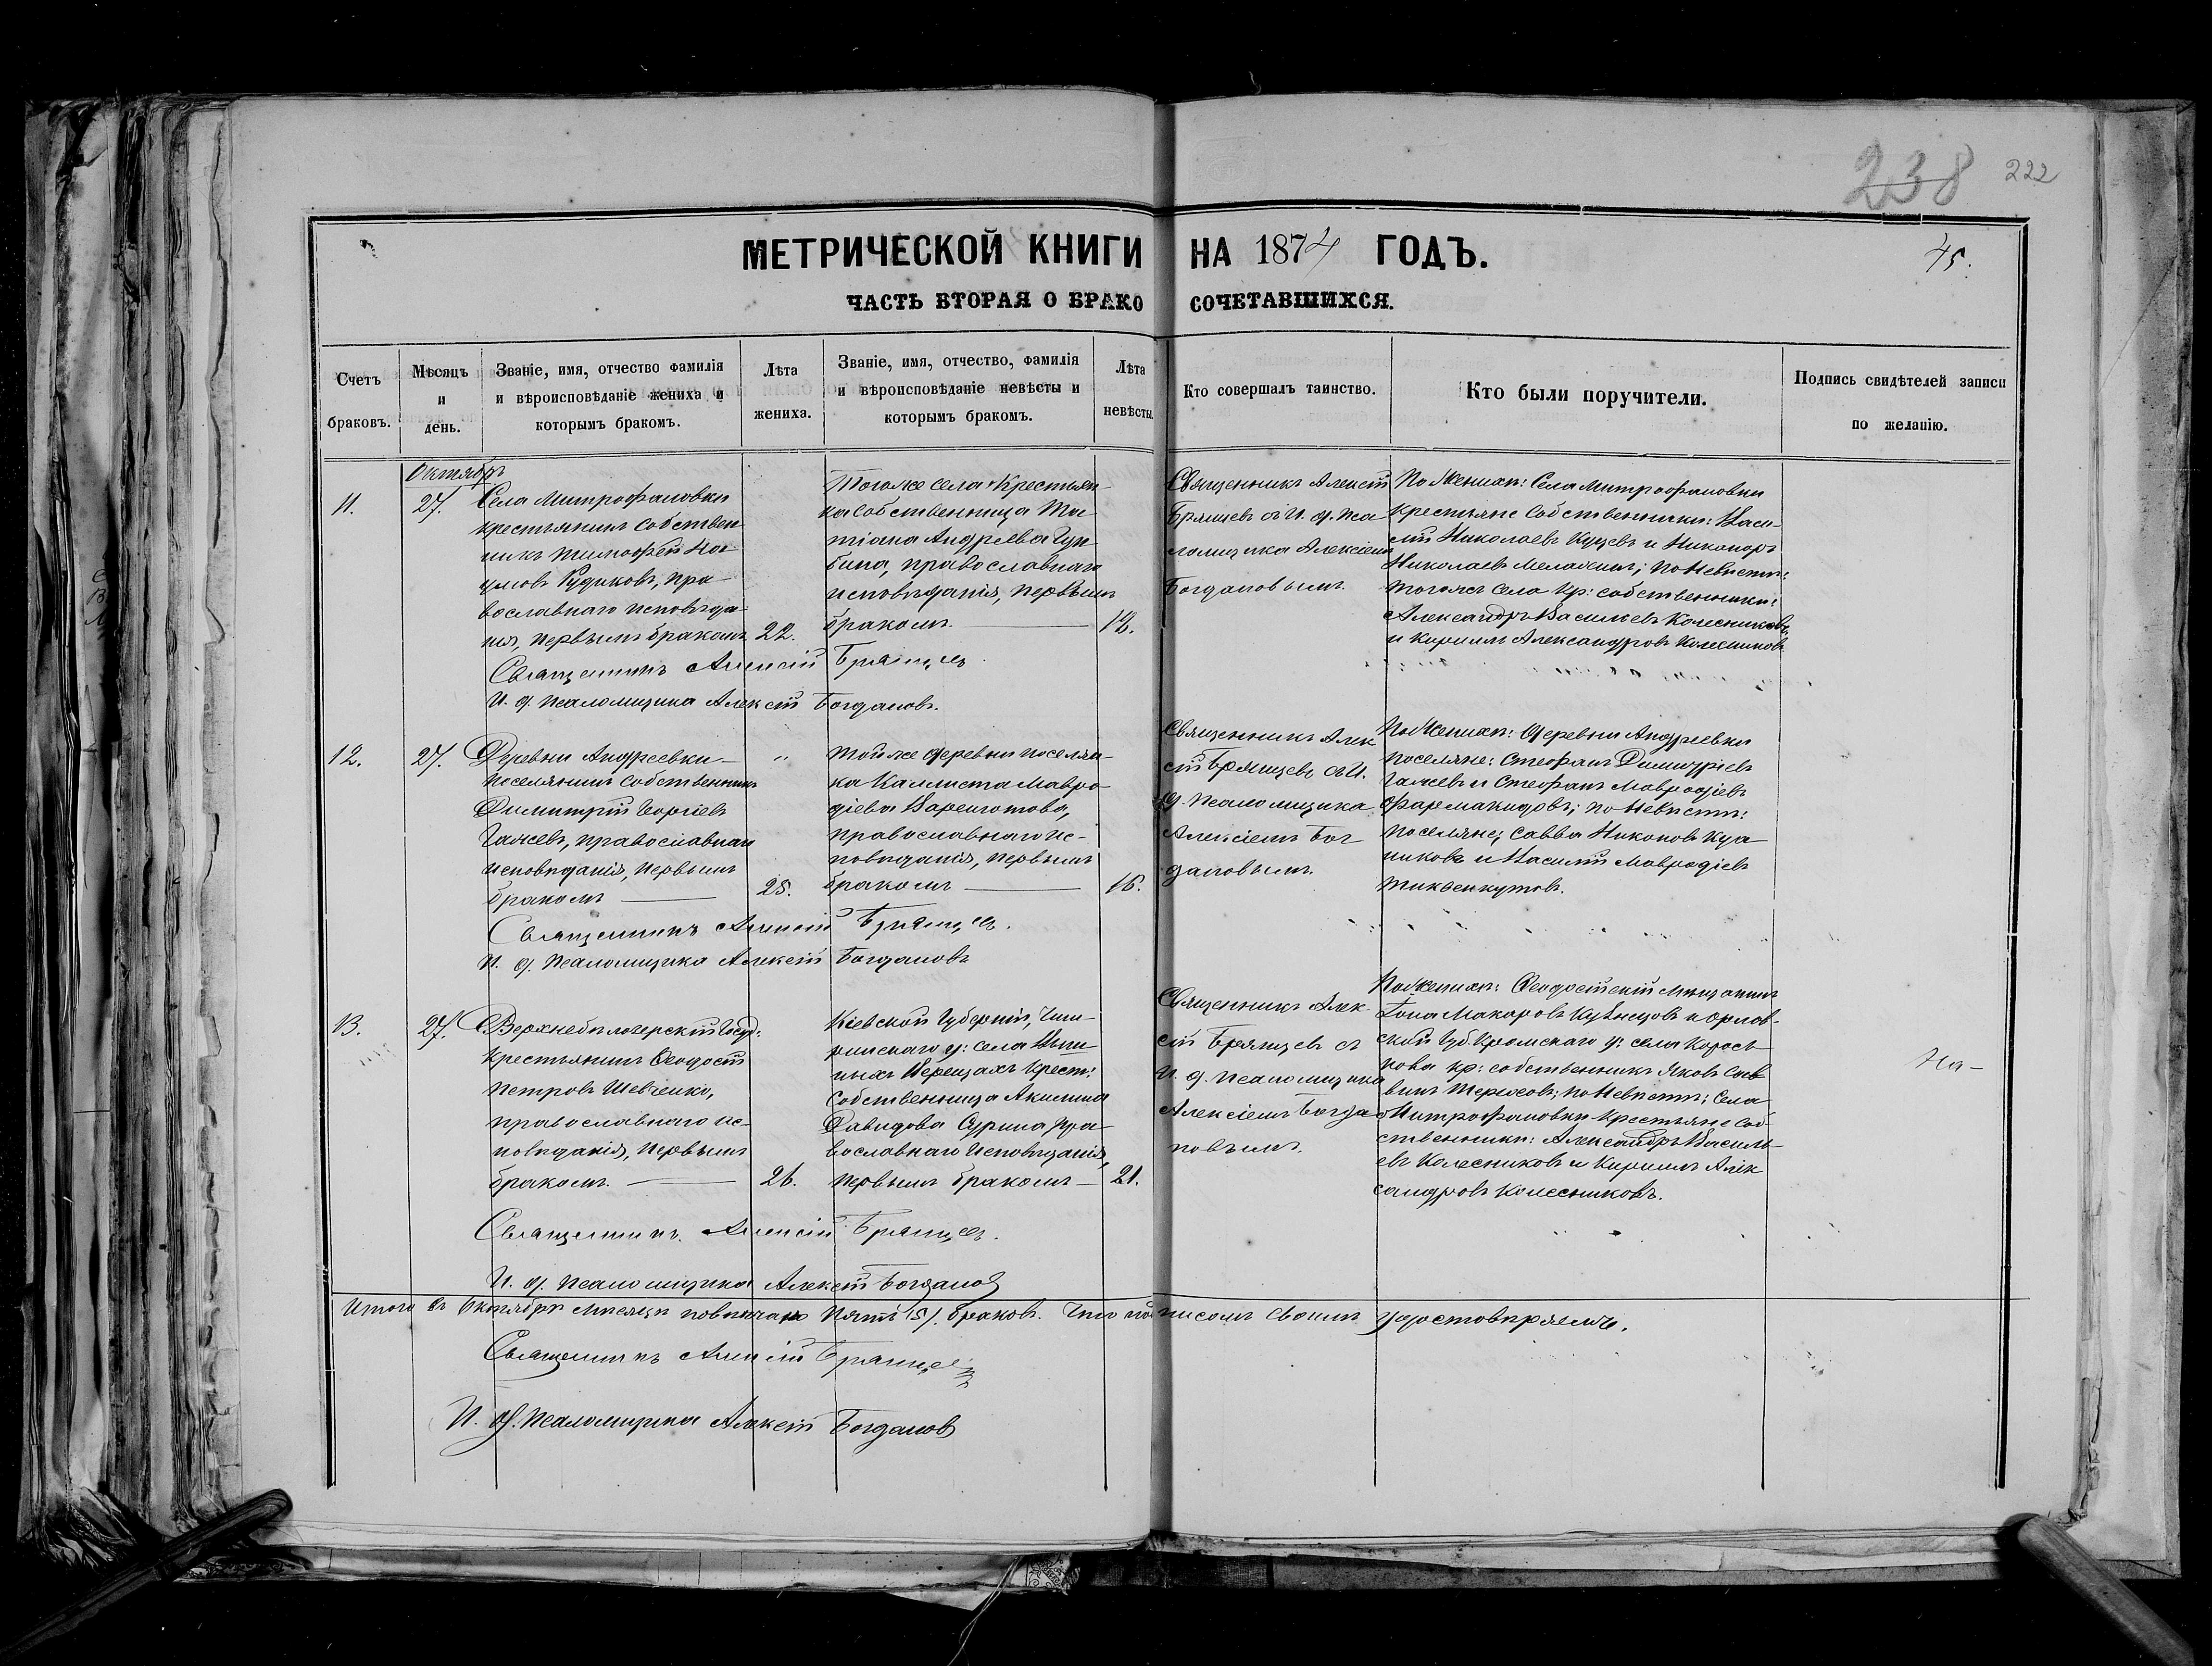 238 222
МЕТРИЧЕСКОЙ КНИГИ НА 1874 ГОДЪ.
45.
ЧАСТЬ ВТОРАЯ О БРАКОСОЧЕТАВШИХСЯ.
Счетъ
браковъ.
Мѣсяцъ
и
день.
Званіе, имя, отчество фамилія
и вѣроисповѣданіе жениха и
которымъ бракомъ.
Лѣта
жениха.
Званіе, имя, отчество, фамилія
и вѣроисповѣданіе невѣсты и
которымъ бракомъ.
Лѣта
невѣсты.
Кто совершалъ таинство.
Кто были поручители.
Подпись свидѣтелей записи
по желанію.
Октябрь
11.
27.
Села Митрофановки
крестьянинъ собствен
никъ Тимофей
Рудиковъ, пра-
вославнаго исповѣда
нія, первымъ бракомъ
22.
Тогоже села Крестьян-
ка собственница Та-
тіана Андреева
православнаго
исповѣданія, первымъ
бракомъ.
18.
Священникъ Алексѣй
Брянцевъ съ И. д. Пса
ломщика Алексіемъ
Богдановымъ.
По Женихѣ: Села Митрофановки
крестьяне собственники: Васи-
лій Николаевъ и Никаноръ
Николаевъ по Невѣстѣ:
тогожъ села кр: собственники:
Александръ Васильевъ Колесниковъ,
и Кириллъ Александровъ Колесниковъ
Священникъ Алексій Брянцевъ.
И. д. Псаломщика Алексѣй Богдановъ.
12.
27.
Деревни Андреевки
поселянинъ собственникъ
Димитрій Георгіевъ
Гажевъ, православнаго
исповѣданія, первымъ
бракомъ
25.
"
Тойже деревни поселян-
ка Каллиста Мавро-
діева
православнаго ис-
повѣданія, первымъ
бракомъ
16.
Священникъ Алек
сѣй Брянцевъ съ И.
д. Псаломщика
Алексіемъ Бог
дановымъ.
По Женихѣ: Деревни Андреевки
поселяне: Стефанъ Димитріевъ
Гажевъ и Стефанъ Мавродіевъ
по Невѣстѣ:
поселяне; Савва Никоновъ
и Василій Мавродіевъ
Священникъ Алексій Брянцевъ.
И. д. Псаломщика Алексѣй Богдановъ
13.
27.
Верхнебѣлозерскій Госуд:
Крестьянинъ Ѳеодосій
Петровъ Шевченко,
православнаго ис-
повѣданія, первымъ
бракомъ.
26.
Кіевской Губерніи, Чиги-
ринскаго у: села
Крест:
собственница Акилина
Давидова пра
вославнаго исповѣданія,
первымъ бракомъ
21.
Священникъ Алек
сѣй Брянцевъ съ
И. д. Псаломщика
Алексіемъ Богда
новымъ.
По Женихѣ: Ѳеодосійскій мѣщанинъ
Іона Макаровъ Кузнецовъ и Орлов-
ской Губ Кромскаго у: села
кр: собственникъ Яковъ
по Невѣстѣ; Села
Митрофановки крестьяне соб-
ственники: Александръ Василь-
евъ Колесниковъ и Кириллъ Алек
сандровъ Колесниковъ.
На-
Священникъ Алексій Брянцевъ.
И. д. Псаломщика Алексѣй Богдановъ
Итого въ Октябрѣ мѣсяцѣ повѣнчано пять /5/. браковъ. Что подписомъ своимъ удостовѣряемъ.
Священникъ Алексій Брянцевъ
И. д. Псаломщика Алексѣй Богдановъ